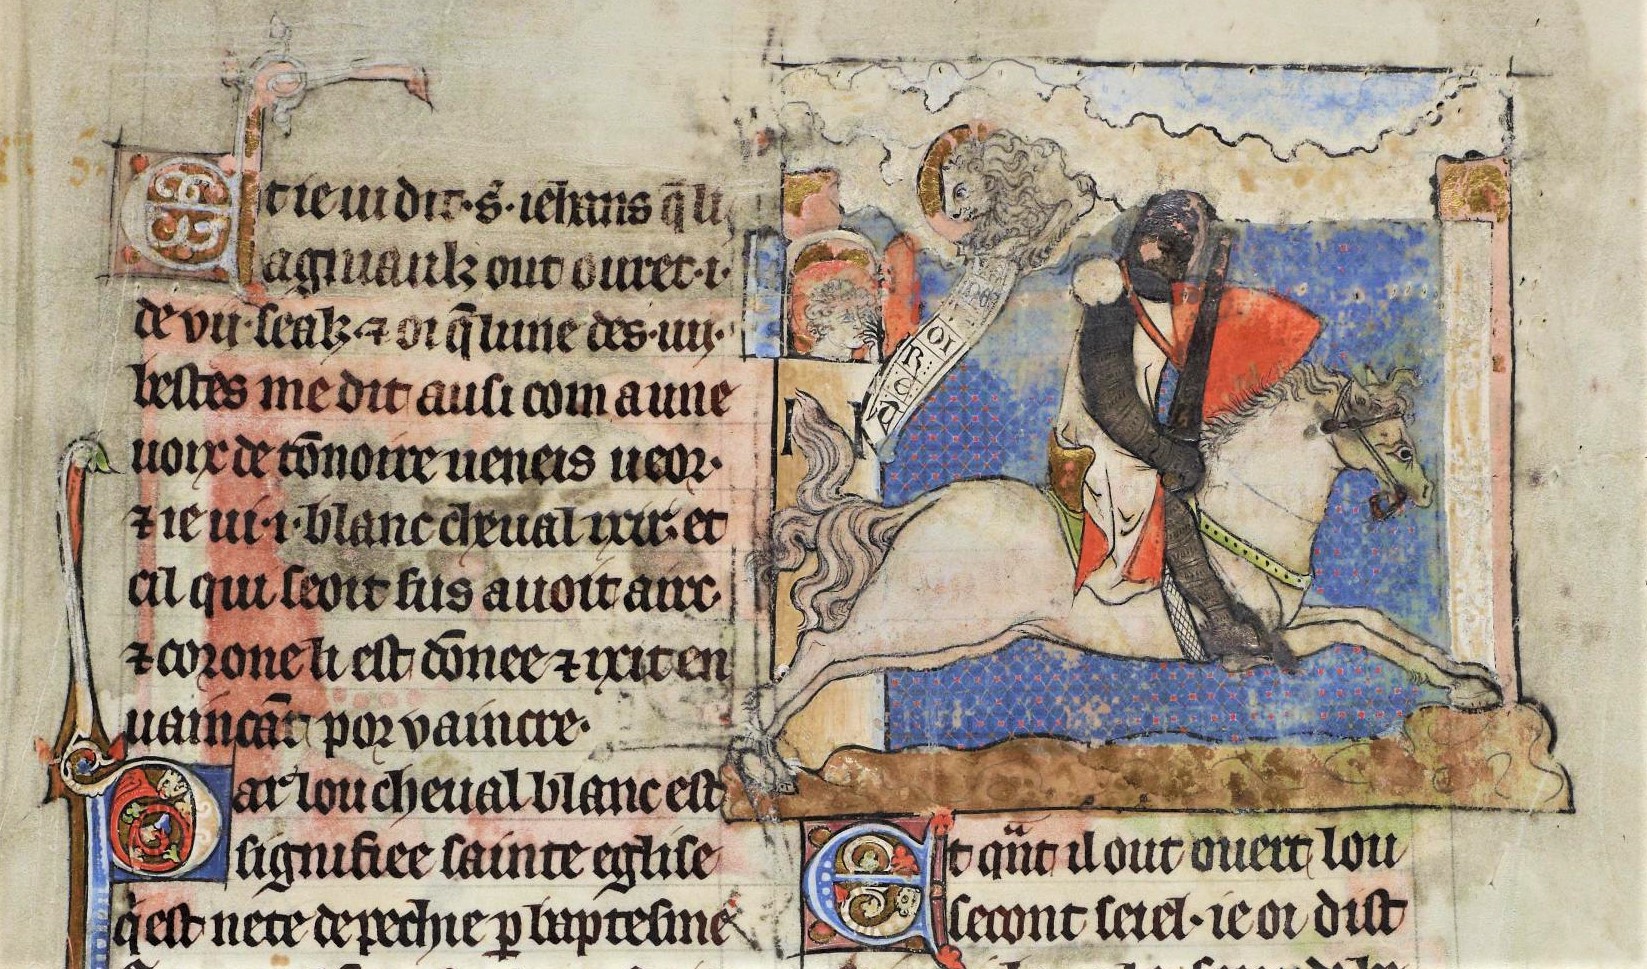 Et ie ui dit·s̄·iehans q̄ li
agniauls out ouret·i·
de vii·seals·⁊ oi q̄ lune des·iiii·
bestes me dit ausi com a une
uoix de tōnoirre ueneis ueor·
⁊ ie ui·i·blanc cheual ixir·et
cil qui seoit sus auoit airc·
⁊ corone li est dōnee ⁊ ixit en
uaincāt por vaincre·
Par lou cheual blanc est
signifiee sainte eglise
q̍ est nete de pechie ꝑ baptesme
Et qūt il out ouert lou
secont seiel·ie oi dist